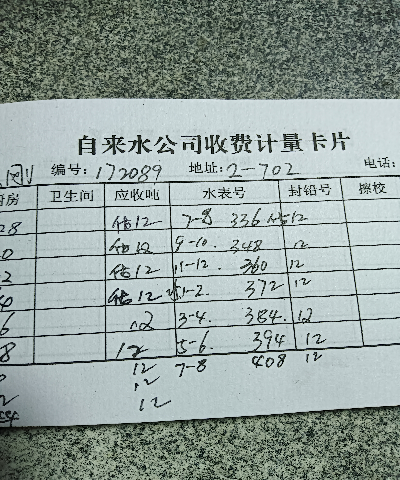 自来水公司收费计量卡片
编号: 172089 地址: 2-702 电话:
厨房 卫生间 应收吨 水表号 封铅号 擦校
28 估12 7-8 336 估12
0 估12 9-10. 348 12
2 估12 11-12. 360 12
0 估12 1-2. 372 12
6 12 3-4. 384. 12
8 12 5-6. 394 12
12 7-8 408 12
12
12